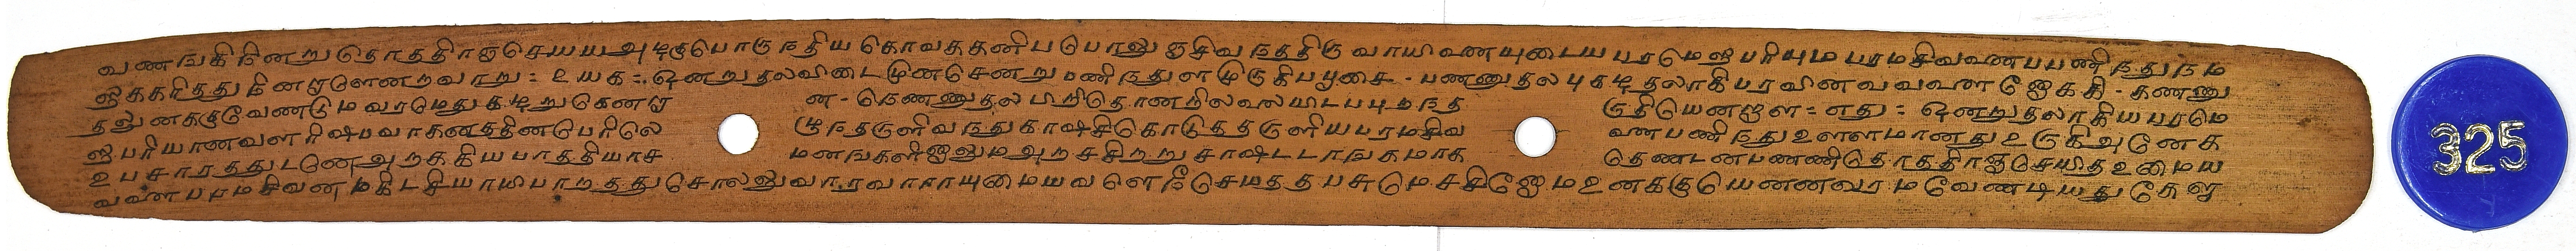 வணஙகிநினறு தொததிரஞ செயய அடிகு பொருநதிய கொவதகணிபபெரனு ஞசிவநததிரு வாயிவணயுடைய பரமெஸபரியும பரமசிவவணபபணிநதுநம
ஸகரிதது நினறாளெனறவாறு : உயக : ஒனறுதலவிடை முனசெனறு பணிநதுளமுருகிபபூசை - பணணுதல புகடிதலாகி பரவினவவவண நோககி - கணணு
தலுனககு வேணடும வரமெது கூறுகெனறா ன - நெணணுதல பிறிதொணறிலவலயிடபபுறநத ருதியெனறாள = எது : ஒனறுதலாகிய பரமெ
ஸபரியாணவள ரிஷபவாகனததினபெரிலெ முநதருளிவநது காஷசி கொடுததருளிய பரமசிவ வணபணிநது உளளமானது உருகி அனேக
உபசாரததுடனே அறககிய பாததியாச மனஙகளிறனும அறசசிறறு சாஷடடாஙகமாக தெணடனபணணி தொததிரஞசெயித உமைய
வவண பரமசிவன மகிடசியாயி பாறதது சொலலுவாரவாராயுமையவளெ நீ செயதத பசுமெசசினோம உனககு யெனனவரம வேணடியது கேளா
325